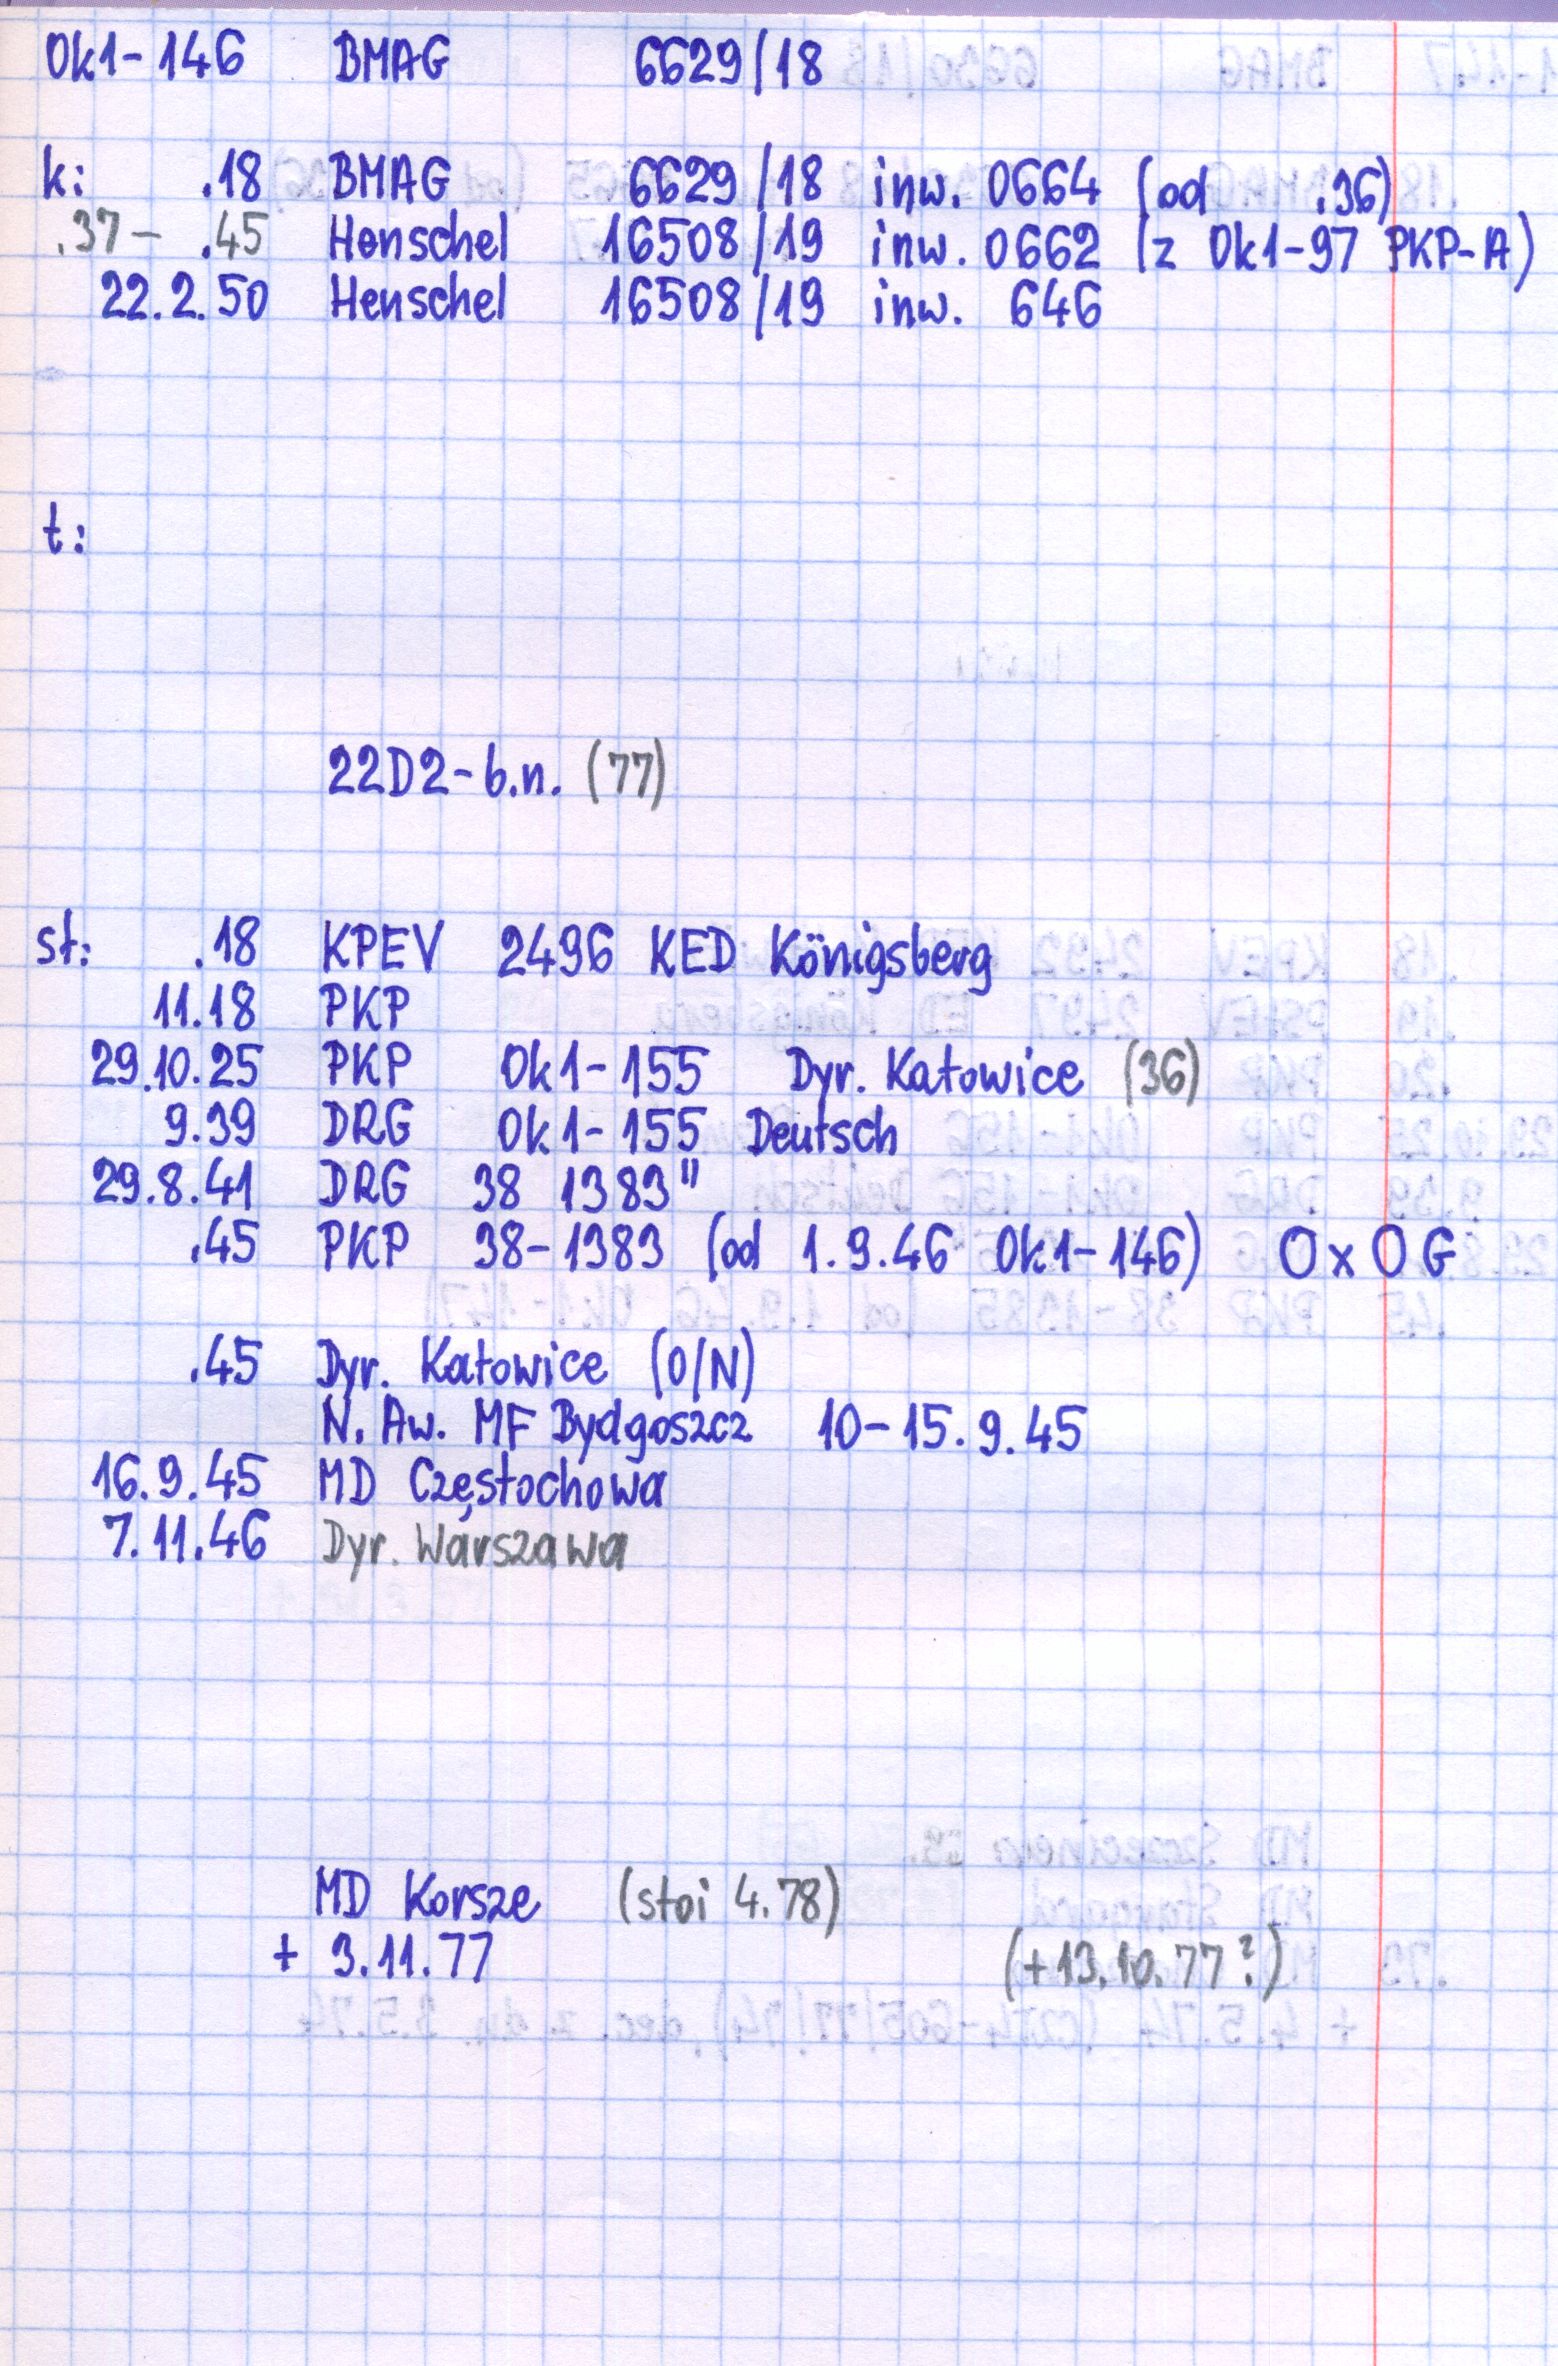 Ok1-146 BMAG 6629/18
k: .18 BMAG 6629/18 inw. 0664 (od .36)
.37- .45 Henschel 16508/19 inw. 0662 (z Ok1-97 PKP-A)
22.2.50 Henschel 16508/19 inw. 646
t:
22D2-b.n. (77)
st: .18 KPEV 2496 KED Königsberg
11.18 PKP
29.10.25 PKP Ok1-155 Dyr. Katowice (36)
9.39 DRG Ok1-155 Deutsch
29.8.41 DRG 38 1383"
.45 PKP 38-1383 (od 1.9.46 Ok1-146) OxOG
.45 Dyr. Katowice (O/N)
N. Aw. MF Bydgoszcz 10-15.9.45
16.9.45 MD Częstochowa
7.11.46 Dyr. Warszawa
MD Korsze (stoi 4.78)
+ 3.11.77 (+13.10.77?)